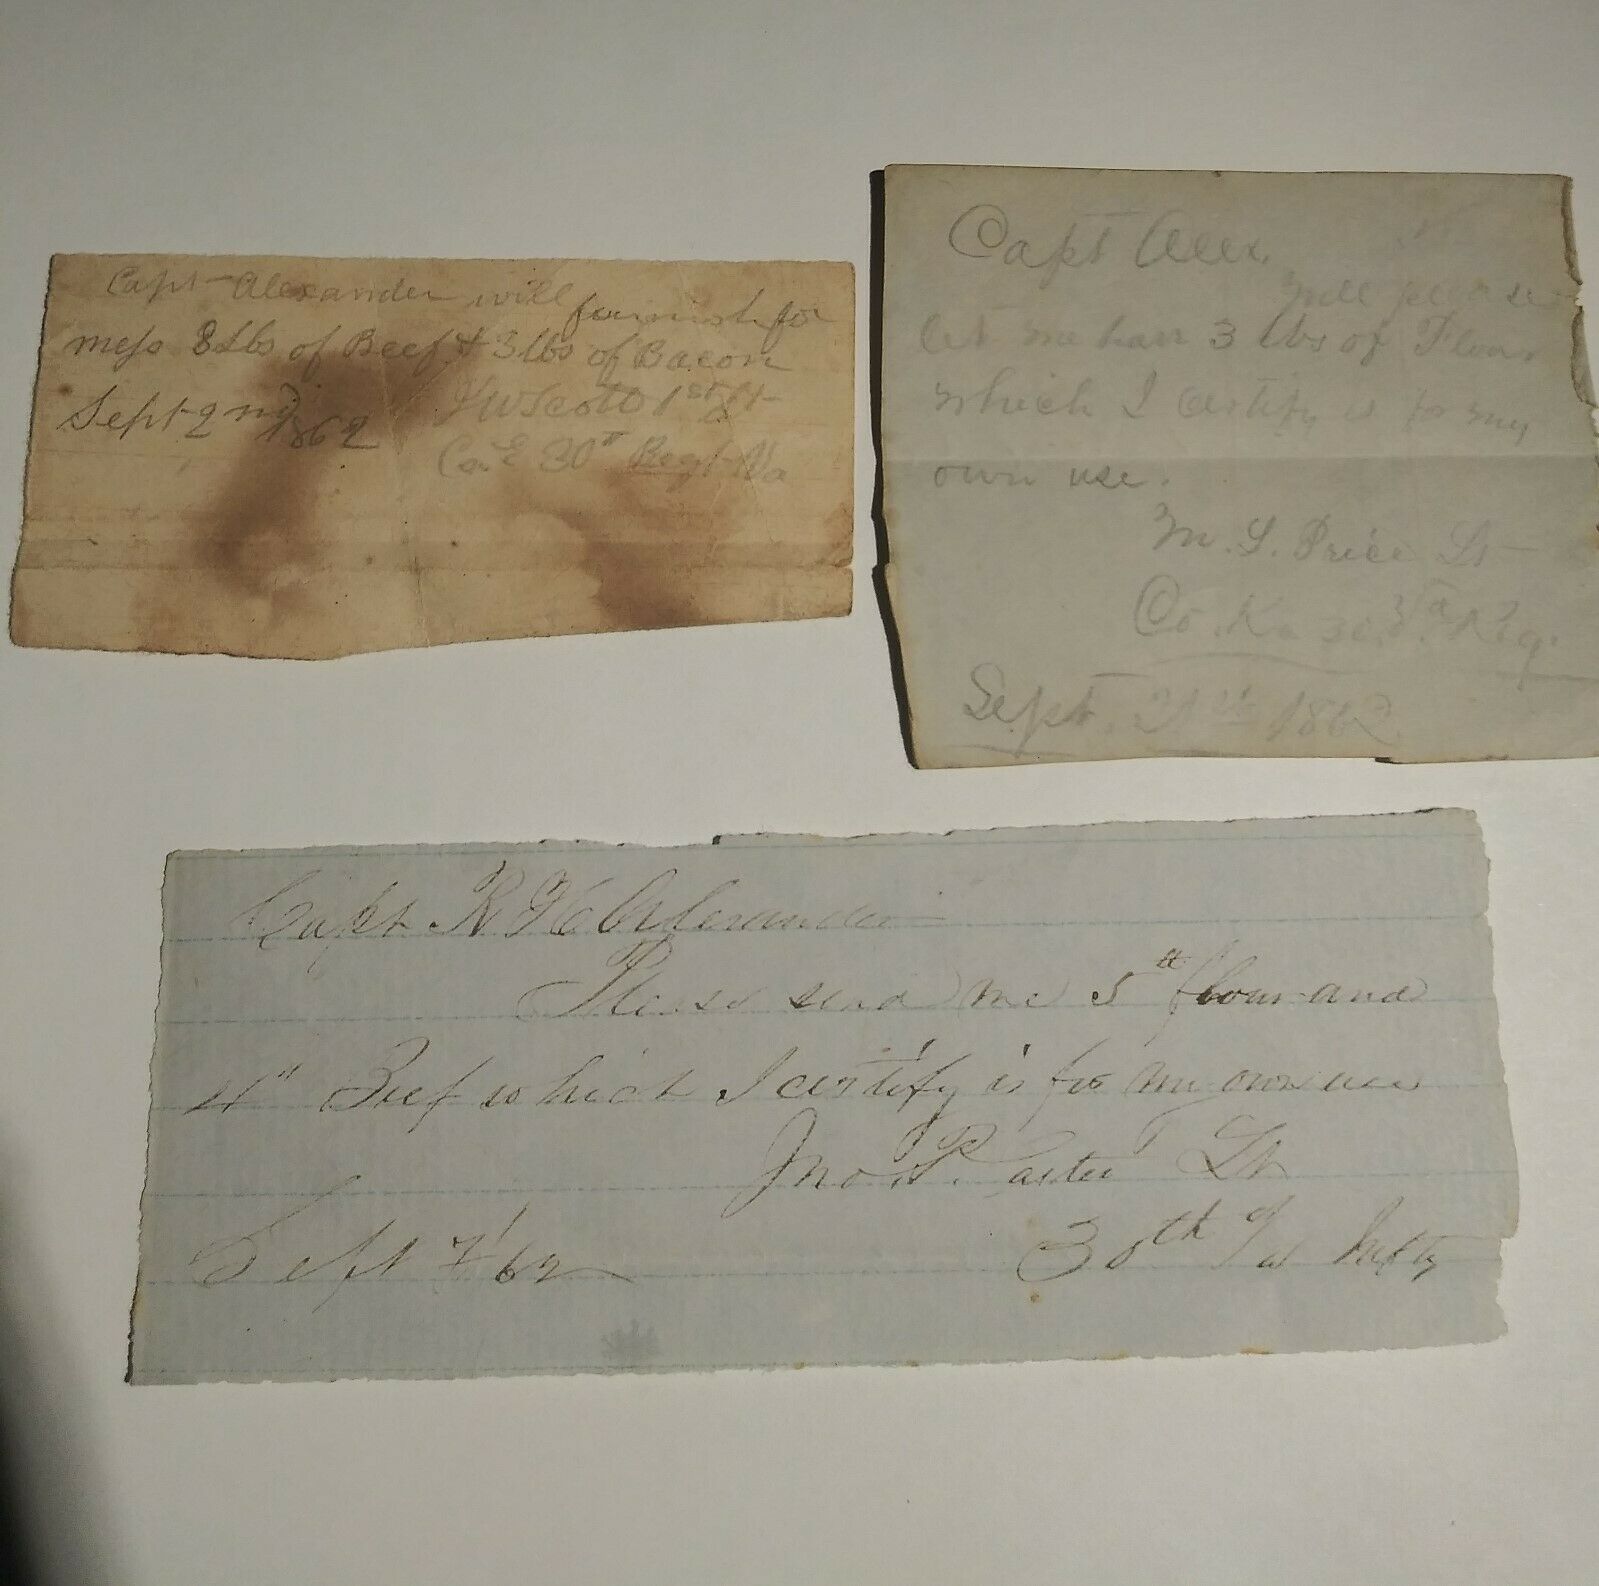 Capt Alexander will furnish for
mess 8 Lbs of Beef & 3 lbs of Bacon
Sept 2nd 1862
JW Scott 1st Lt
Co E 30th Regt Va
Capt Alex.
will please
let me have 3 lbs of Flour
which I certify is for my
own use.
M. S. Price Lt
Co. K. 30 Va Reg.
Sept. 21st 1862
Capt R H Alexander
Please send me 5 lb flour and
4" Beef which I certify is for my own use
Jno. Lt
Sept 7/62
30th Va Infty